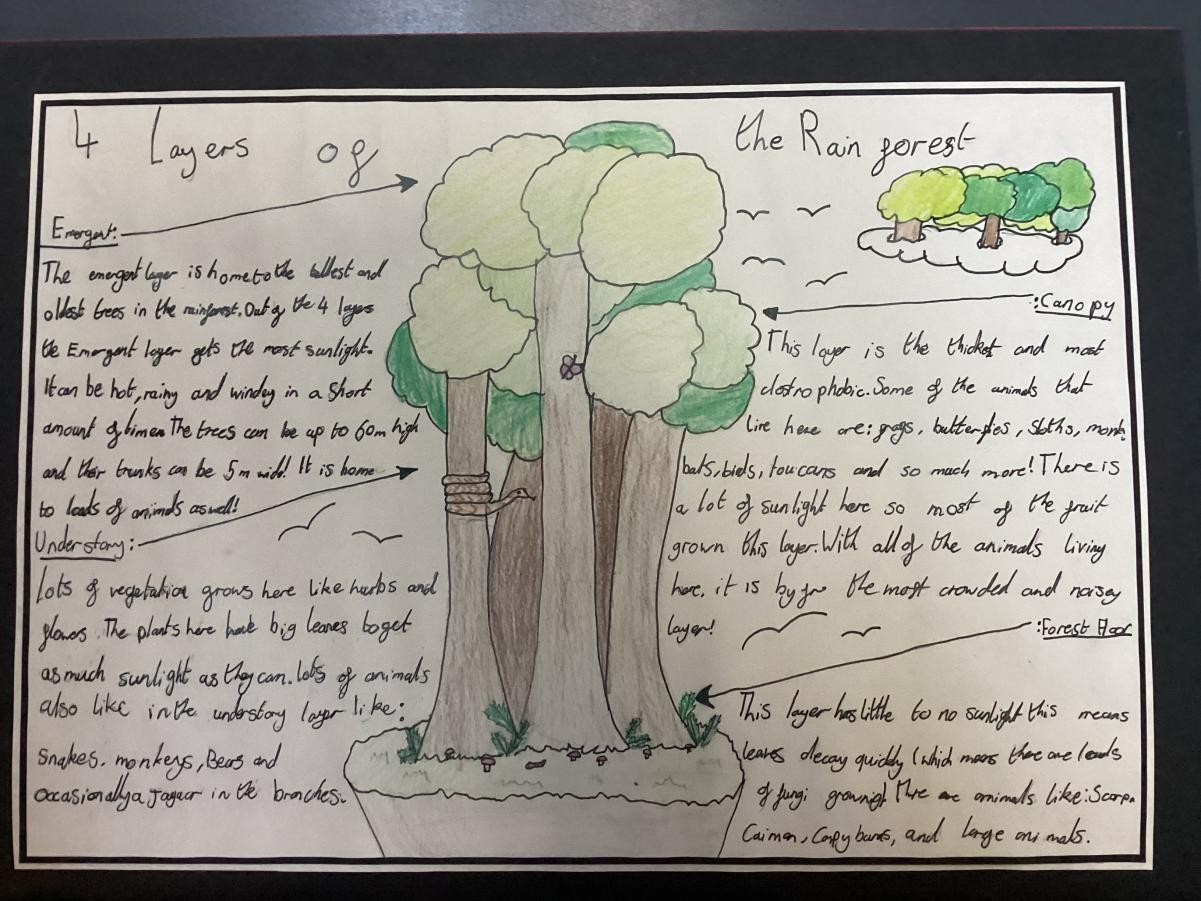 4 Layers of the Rain forest
Emergent:
The emergent layer is home to the tallest and
oldest trees in the rainforest. Out of the 4 layers
the Emergent layer gets the most sunlight.
It can be hot, rainy and windey in a short
amount of time. The trees can be up to 60m high
and their trunks can be 5m wide! It is home
to loads of animals aswell!
Understory:
Lots of vegetation grows here like hurbs and
flowers. The plants here have big leaves to get
as much sunlight as they can. lots of animals
also like in the understory layer like:
Snakes, monkeys, Bears and
occasionally a Jaguar in the branches.
:Canopy
This layer is the thickest and most
clostrophobic. Some of the animals that
live here are: frogs, butterflies, Sloths, monk
bats, birds, toucans and so much more! There is
a lot of sunlight here so most of the fruit
grown this layer. With all of the animals living
here, it is by far the most crowded and noisey
layer!
:Forest Floor
This layer has little to no sunlight this means
leaves decay quickly (which means there are loads
of fungi growing) there are animals like: Scorp
Caiman, Capybaras, and large animals.